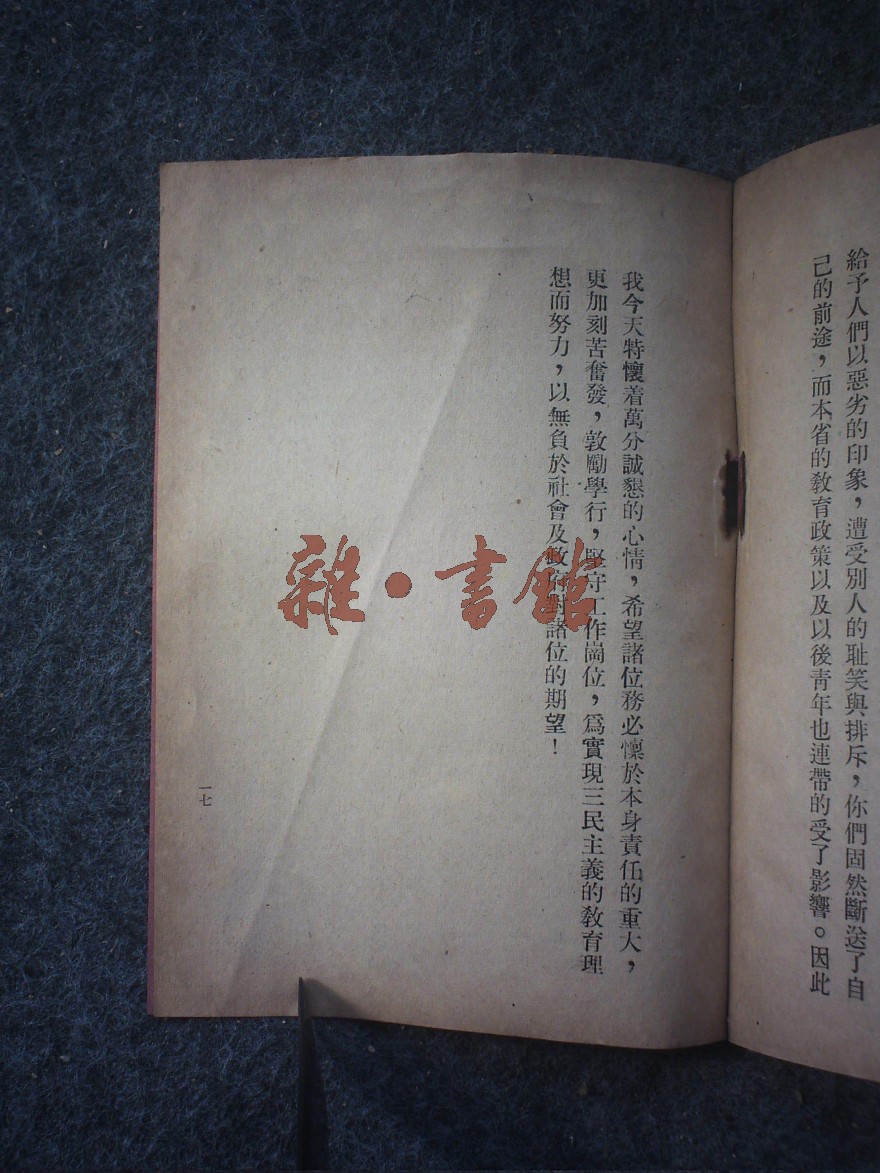 給予人們以惡劣的印象，遭受別人的耻笑與排斥，你們固然斷送了自
己的前途，而本省的敎育政策以及以後靑年也連帶的受了影響。因此
我今天特懷着萬分誠懇的心情，希望諸位務必懍於本身責任的重大，
更加刻苦奮發，敦勵學行，堅守工作崗位，爲實現三民主義的敎育理
想而努力，以無負於社會及政府對諸位的期望！
一七
雜·書館